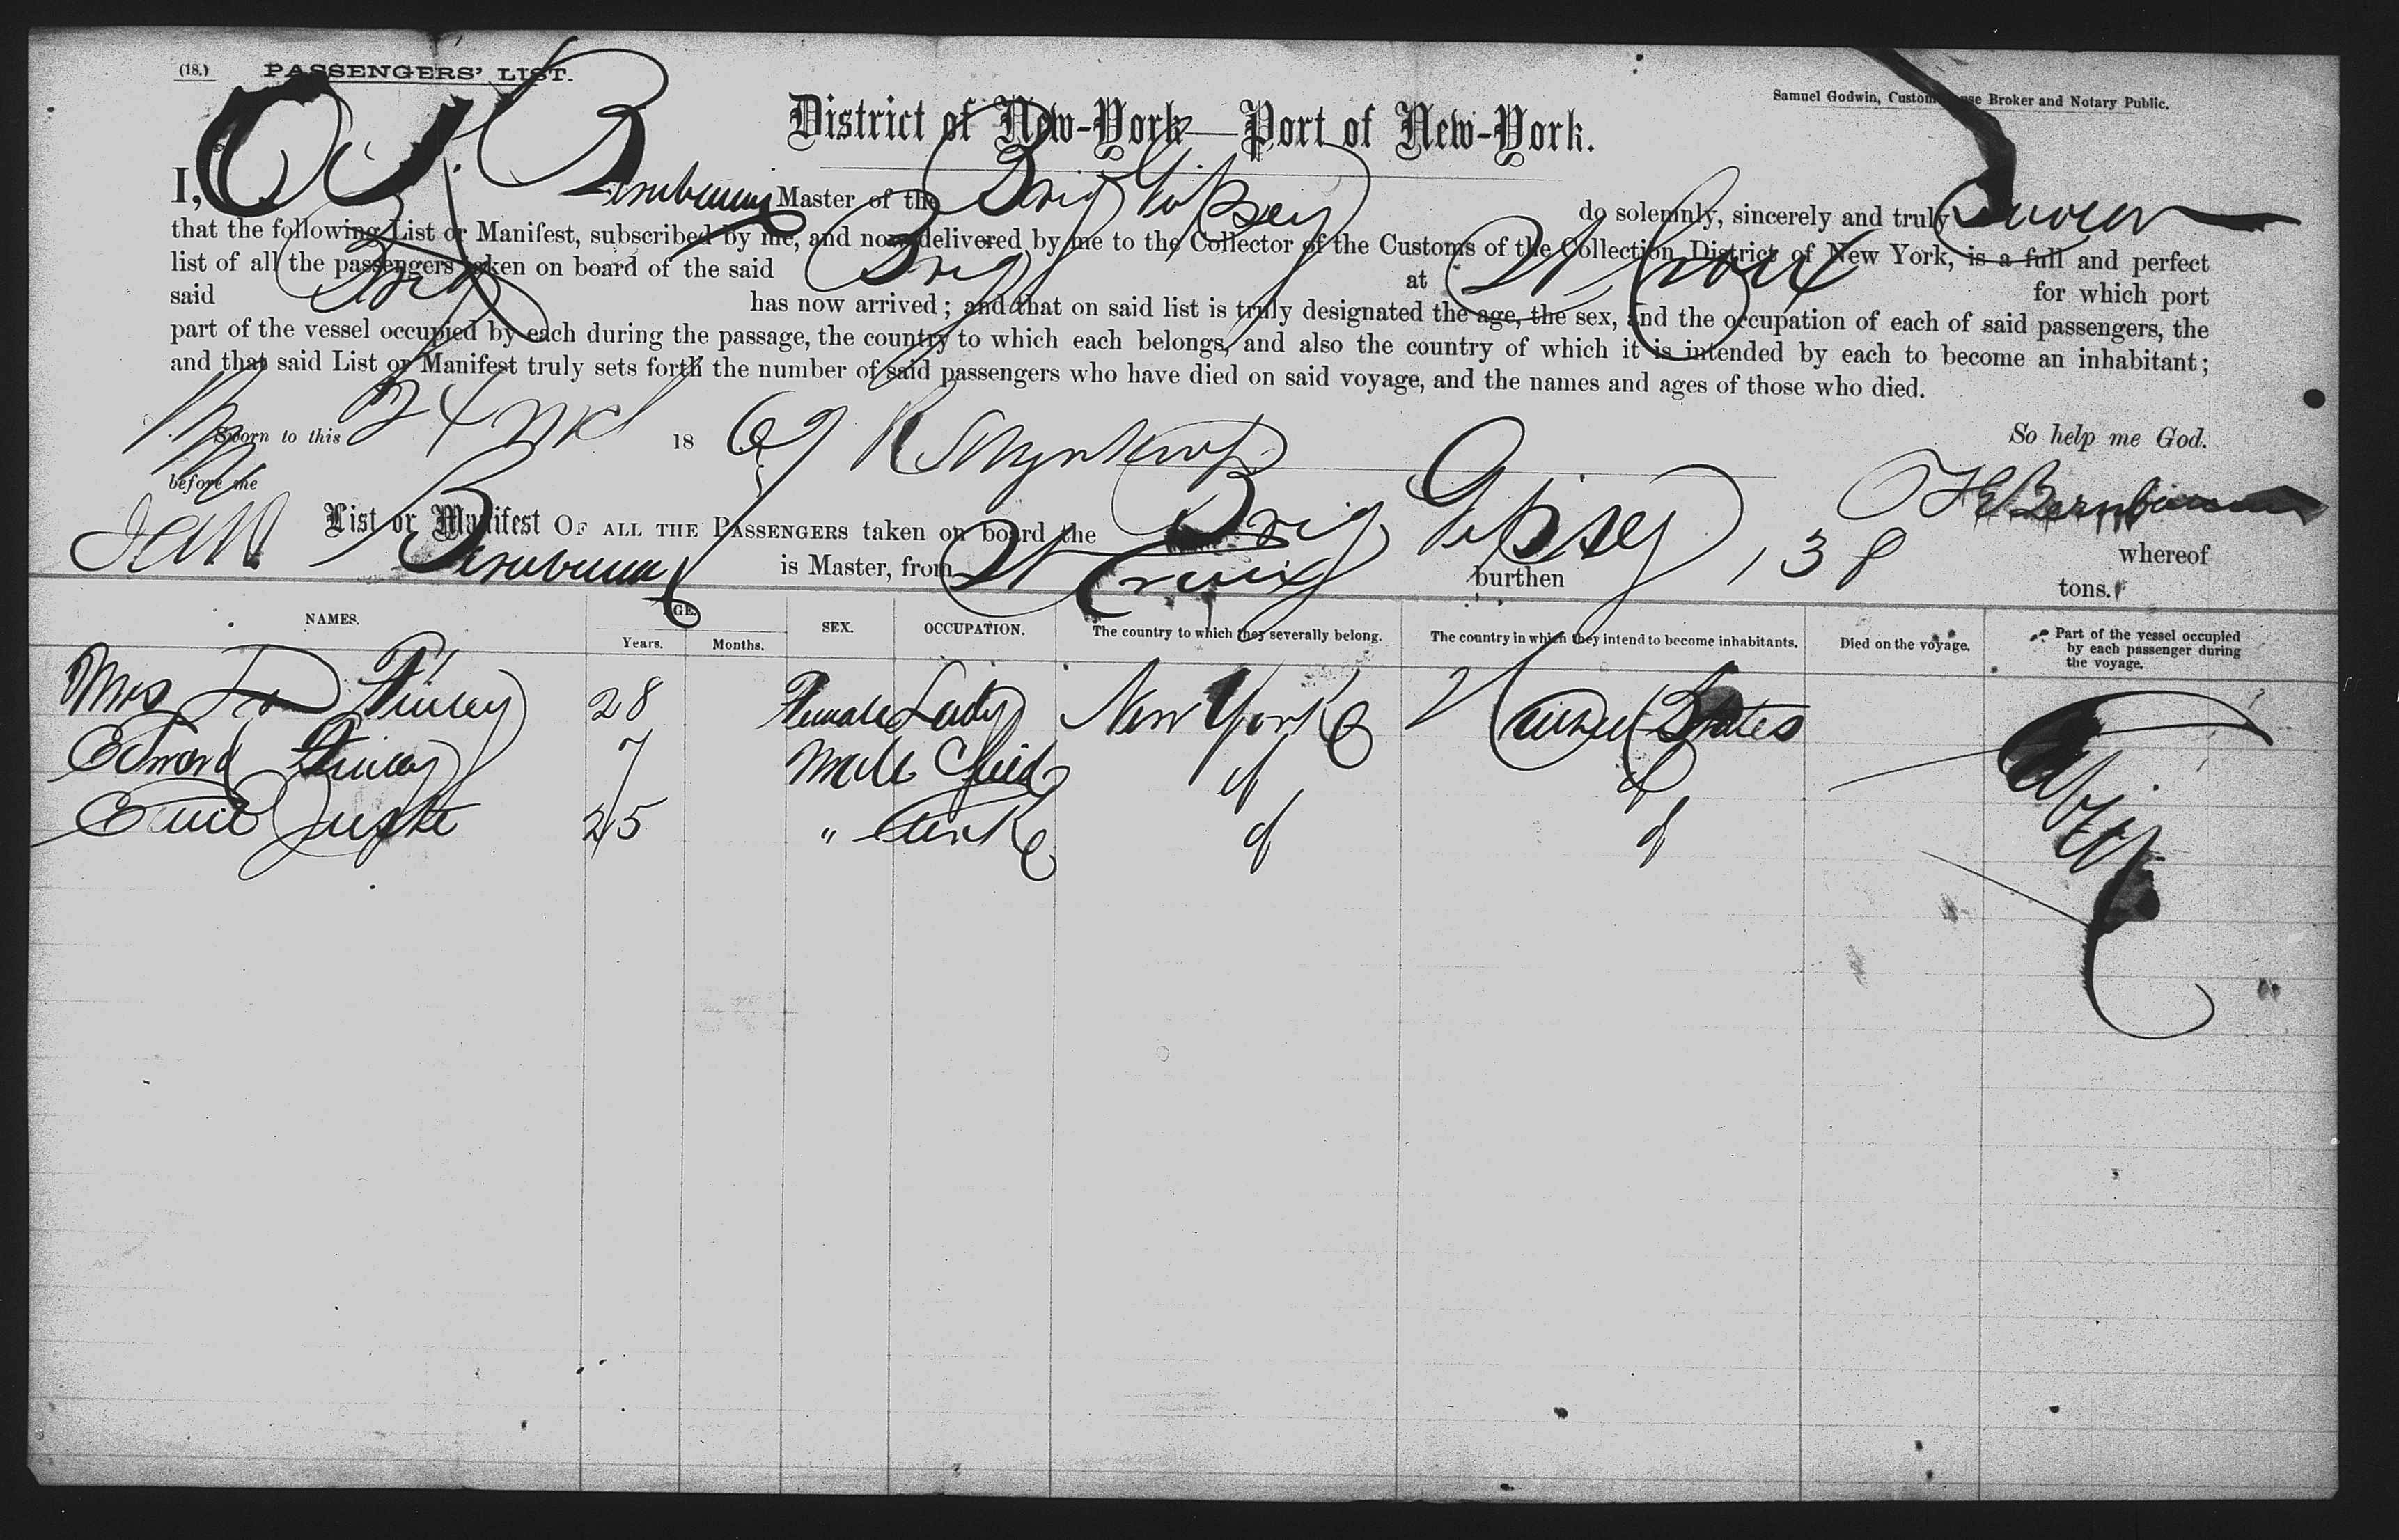 (18.) PASSENGERS' LIST.
Samuel Godwin, Custom House Broker and Notary Public.
District of New-York—Port of New-York.
I, Master of the Brig Gipsey do solemnly, sincerely and truly Swear
that the following List or Manifest, subscribed by me, and now delivered by me to the Collector of the Customs of the Collection District of New York, is a full and perfect
list of all the passengers taken on board of the said Brig at St Croix for which port
said Brig has now arrived; and that on said list is truly designated the age, the sex, and the occupation of each of said passengers, the
part of the vessel occupied by each during the passage, the country to which each belongs, and also the country of which it is intended by each to become an inhabitant;
and that said List or Manifest truly sets forth the number of said passengers who have died on said voyage, and the names and ages of those who died.
So help me God.
Sworn to this 24 1869
before me
List or Manifest OF ALL THE PASSENGERS taken on board the Brig Gipsey whereof
is Master, from St Croix burthen 138 tons.
NAMES. AGE. Years. Months. SEX. OCCUPATION. The country to which they severally belong. The country in which they intend to become inhabitants. Died on the voyage. Part of the vessel occupied by each passenger during the voyage.
Mrs 28 Female Lady New York United States
Edward 7 Male Child d d
25 " Clerk d d
Cabin